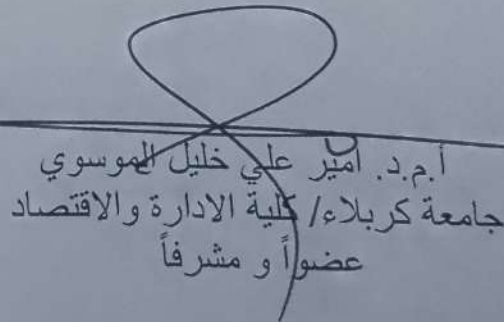 أ.م.د. امير علي خليل الموسوي
جامعة كربلاء/ كلية الادارة والاقتصاد
عضواً و مشرفاً